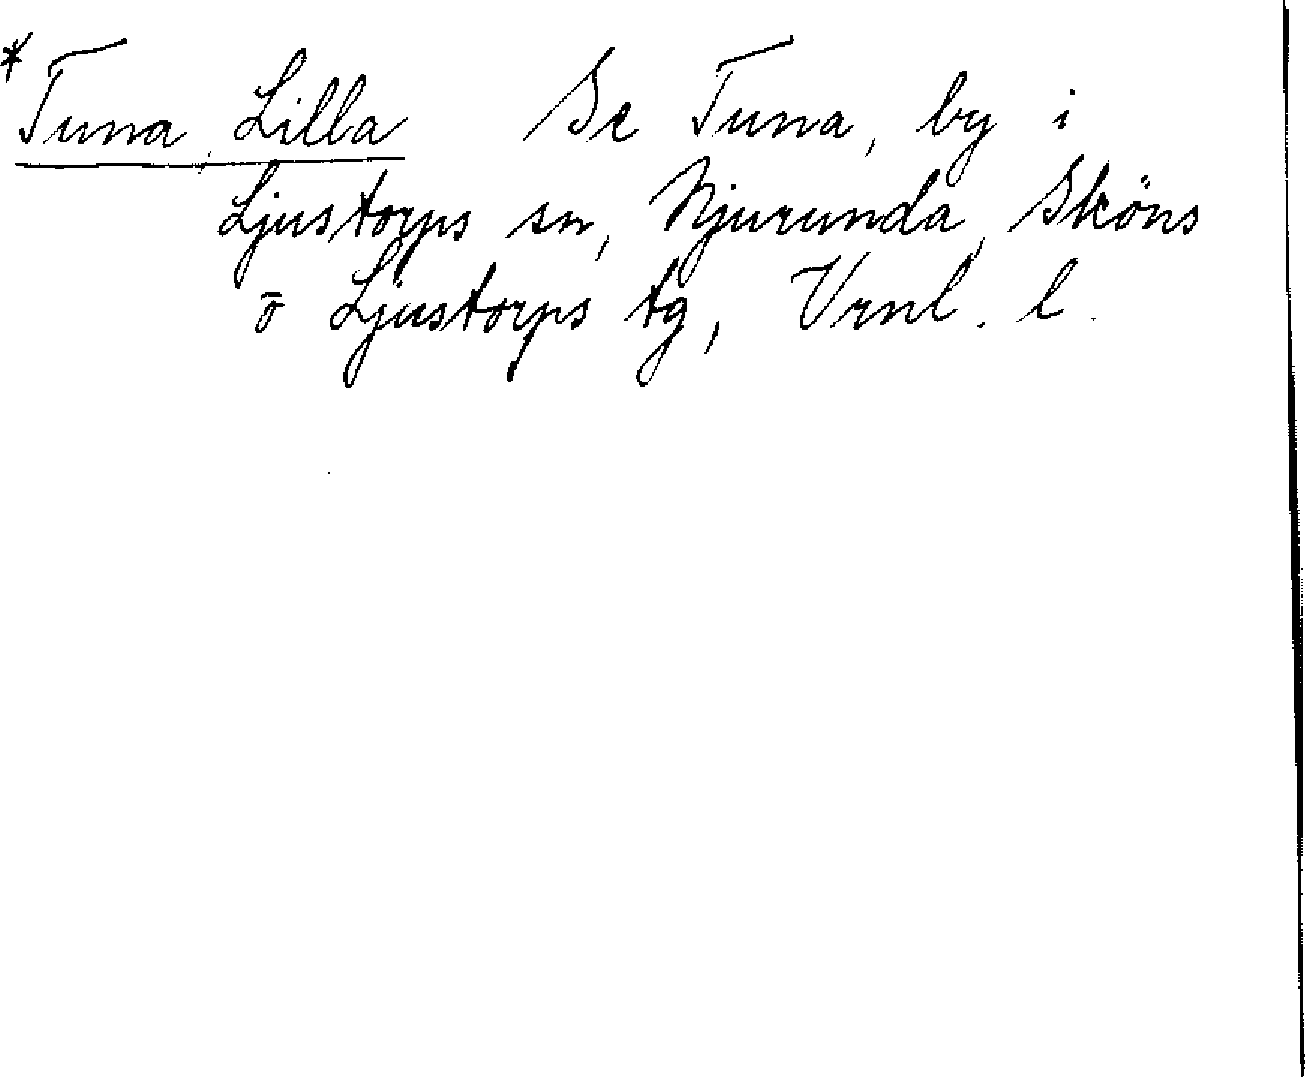 * Tuna, Lilla Se Tuna, by i
Ljustorps sn, Njurunda, Sköns
o Ljustorps tg, Vrnl. l.